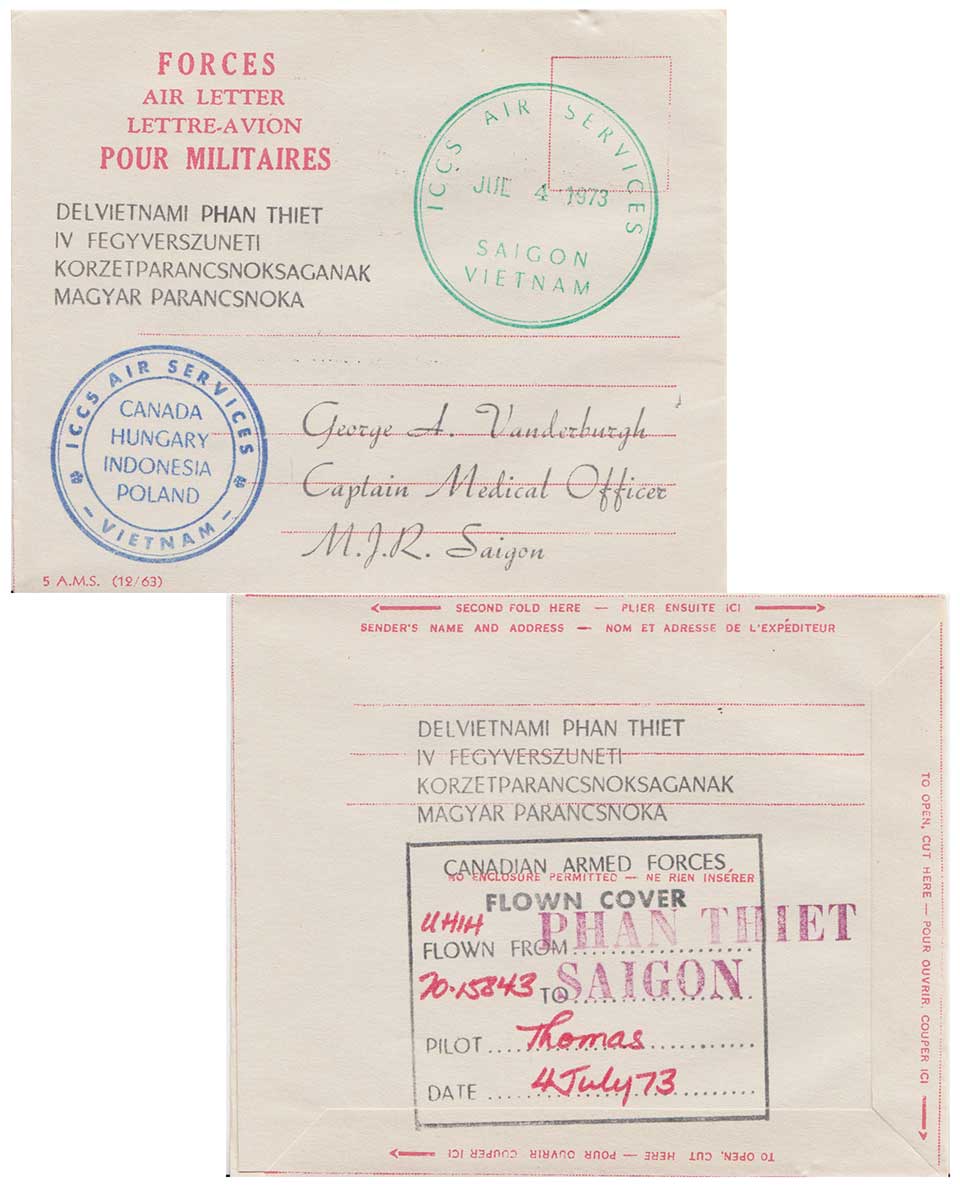 FORCES
AIR LETTER
LETTRE-AVION
POUR MILITAIRES
DELVIETNAMI PHAN THIET
IV FEGYVERSZUNETI
KORZETPARANCSNOKSAGANAK
MAGYAR PARANCSNOKA
ICCS AIR SERVICES
JUL 4 1973
SAIGON
VIETNAM
ICCS AIR SERVICES
CANADA
HUNGARY
INDONESIA
POLAND
- VIETNAM -
George A. Vanderburgh
Captain Medical Officer
M.J.R. Saigon
5 A.M.S. (12/63)
SECOND FOLD HERE — PLIER ENSUITE ICI
SENDER'S NAME AND ADDRESS — NOM ET ADRESSE DE L'EXPÉDITEUR
DELVIETNAMI PHAN THIET
IV FEGYVERSZUNETI
KORZETPARANCSNOKSAGANAK
MAGYAR PARANCSNOKA
CANADIAN ARMED FORCES
NO ENCLOSURE PERMITTED — NE RIEN INSÉRER
FLOWN COVER
UH1H
FLOWN FROM PHAN THIET
70-15843 TO SAIGON
PILOT Thomas
DATE 4 July 73
TO OPEN, CUT HERE — POUR OUVRIR COUPER ICI
TO OPEN, CUT HERE — POUR OUVRIR COUPER ICI